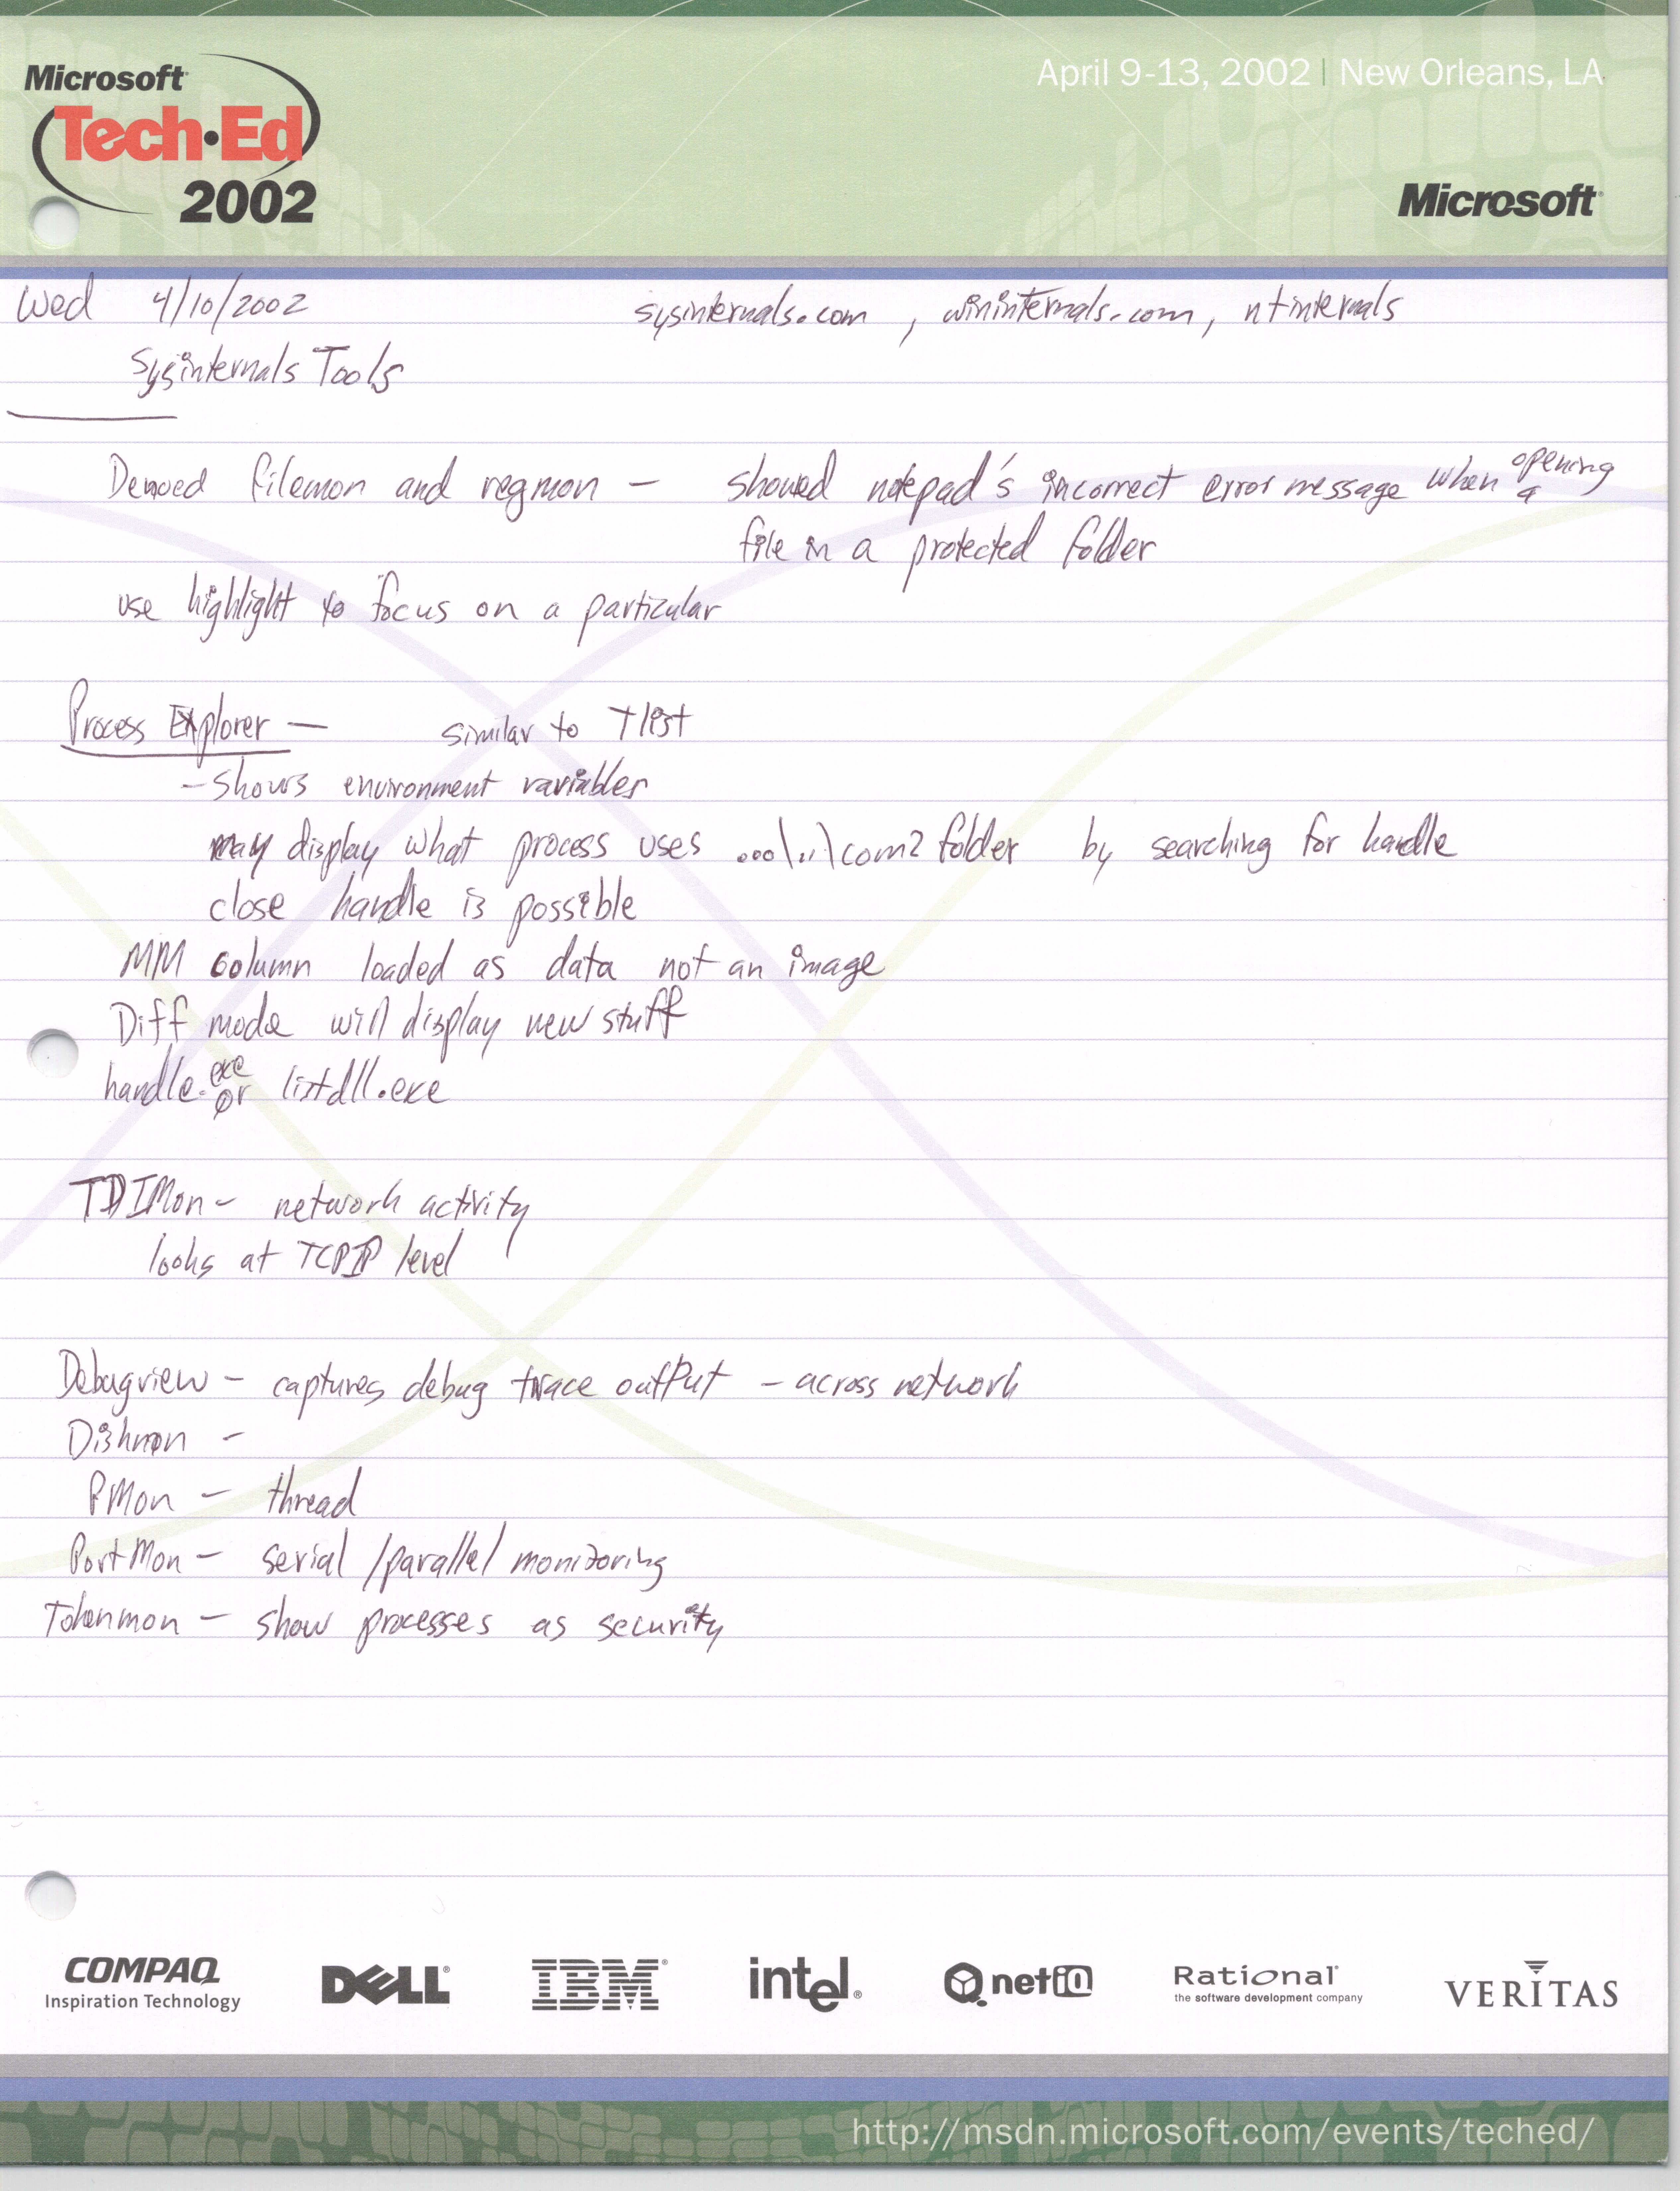 April 9-13, 2002 | New Orleans, LA
Microsoft
Tech·Ed
2002
Microsoft
Wed 4/10/2002 sysinternals.com , wininternals.com, ntinternals
Sysinternals Tools
Demoed filemon and regmon – showed notepad's incorrect error message when opening a
file in a protected folder
use highlight to focus on a particular
Process Explorer – similar to Tlist
- Shows environment variables
may display what process uses ...\..\com2 folder by searching for handle
close handle is possible
MM column loaded as data not an image
Diff mode will display new stuff
handle.exe or listdll.exe
TDIMon – network activity
looks at TCPIP level
Debugview – captures debug trace output – across network
Diskmon –
PMon – thread
PortMon – serial /parallel monitoring
Tokenmon – show processes as security
COMPAQ
Inspiration Technology
DELL
IBM
intel
netiQ
Rational
the software development company
VERITAS
http://msdn.microsoft.com/events/teched/